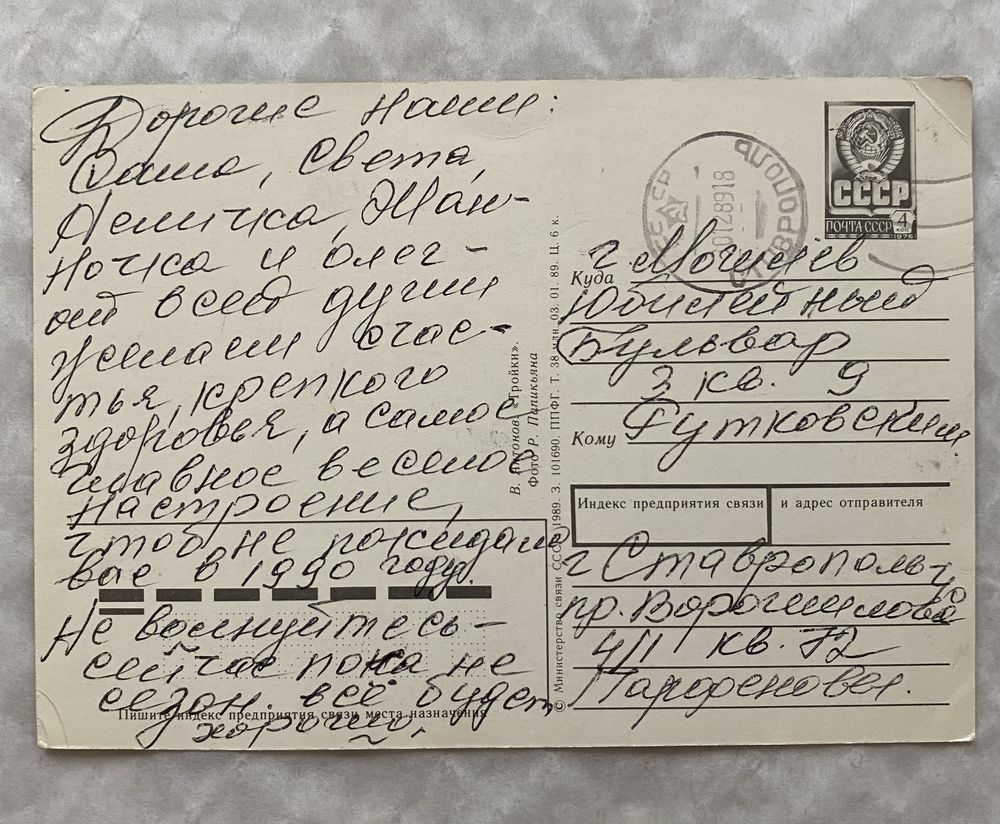 Дорогие наши:
Саша, Света,
Лелична, Жан-
ночка и Олег-
от всей души
желаем счас-
тья, крепкого
здоровья, а самое
главное веселое
настроение,
чтоб не покидало
вас в 1990 году.
Не волнуйтесь -
сейчас пока не
сезон. всё будет
хорошо.
Пишите индекс предприятия связи места назначения
В. Антонов «Тройки».
Фото Р. Папикьяна
© Министерство связи СССР. 1989. З. 101690. ППФГ. Т. 38 млн. 03. 01. 89. Ц. 6 к.
СССР
ПОЧТА СССР 4
КОП
1976
СТАВРОПОЛЬ
Куда г. Могилев
Юбилейный
Бульвар
3 кв. 9
Кому Гутковским
Индекс предприятия связи и адрес отправителя
г Ставрополь
пр. Ворошилова
4/1 кв. 72
Парфеновы.